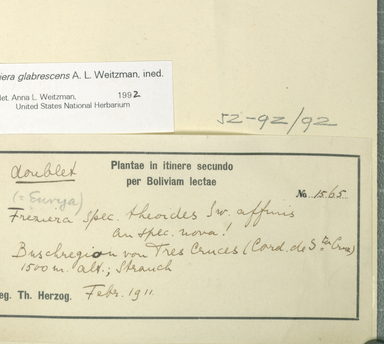 iera glabrescens A. L. Weitzman, ined.
det. Anna L. Weitzman, 1992
United States National Herbarium
52-92/92
doublet
Plantae in itinere secundo
per Boliviam lectae
(= Eurya)
No 1565
Freziera spec. theoides Sw. affinis
an spec. nova!
Buschregion von Tres Cruces (Cord. de Sta Cruz)
1500 m. alt.; Strauch
leg. Th. Herzog. Febr. 1911